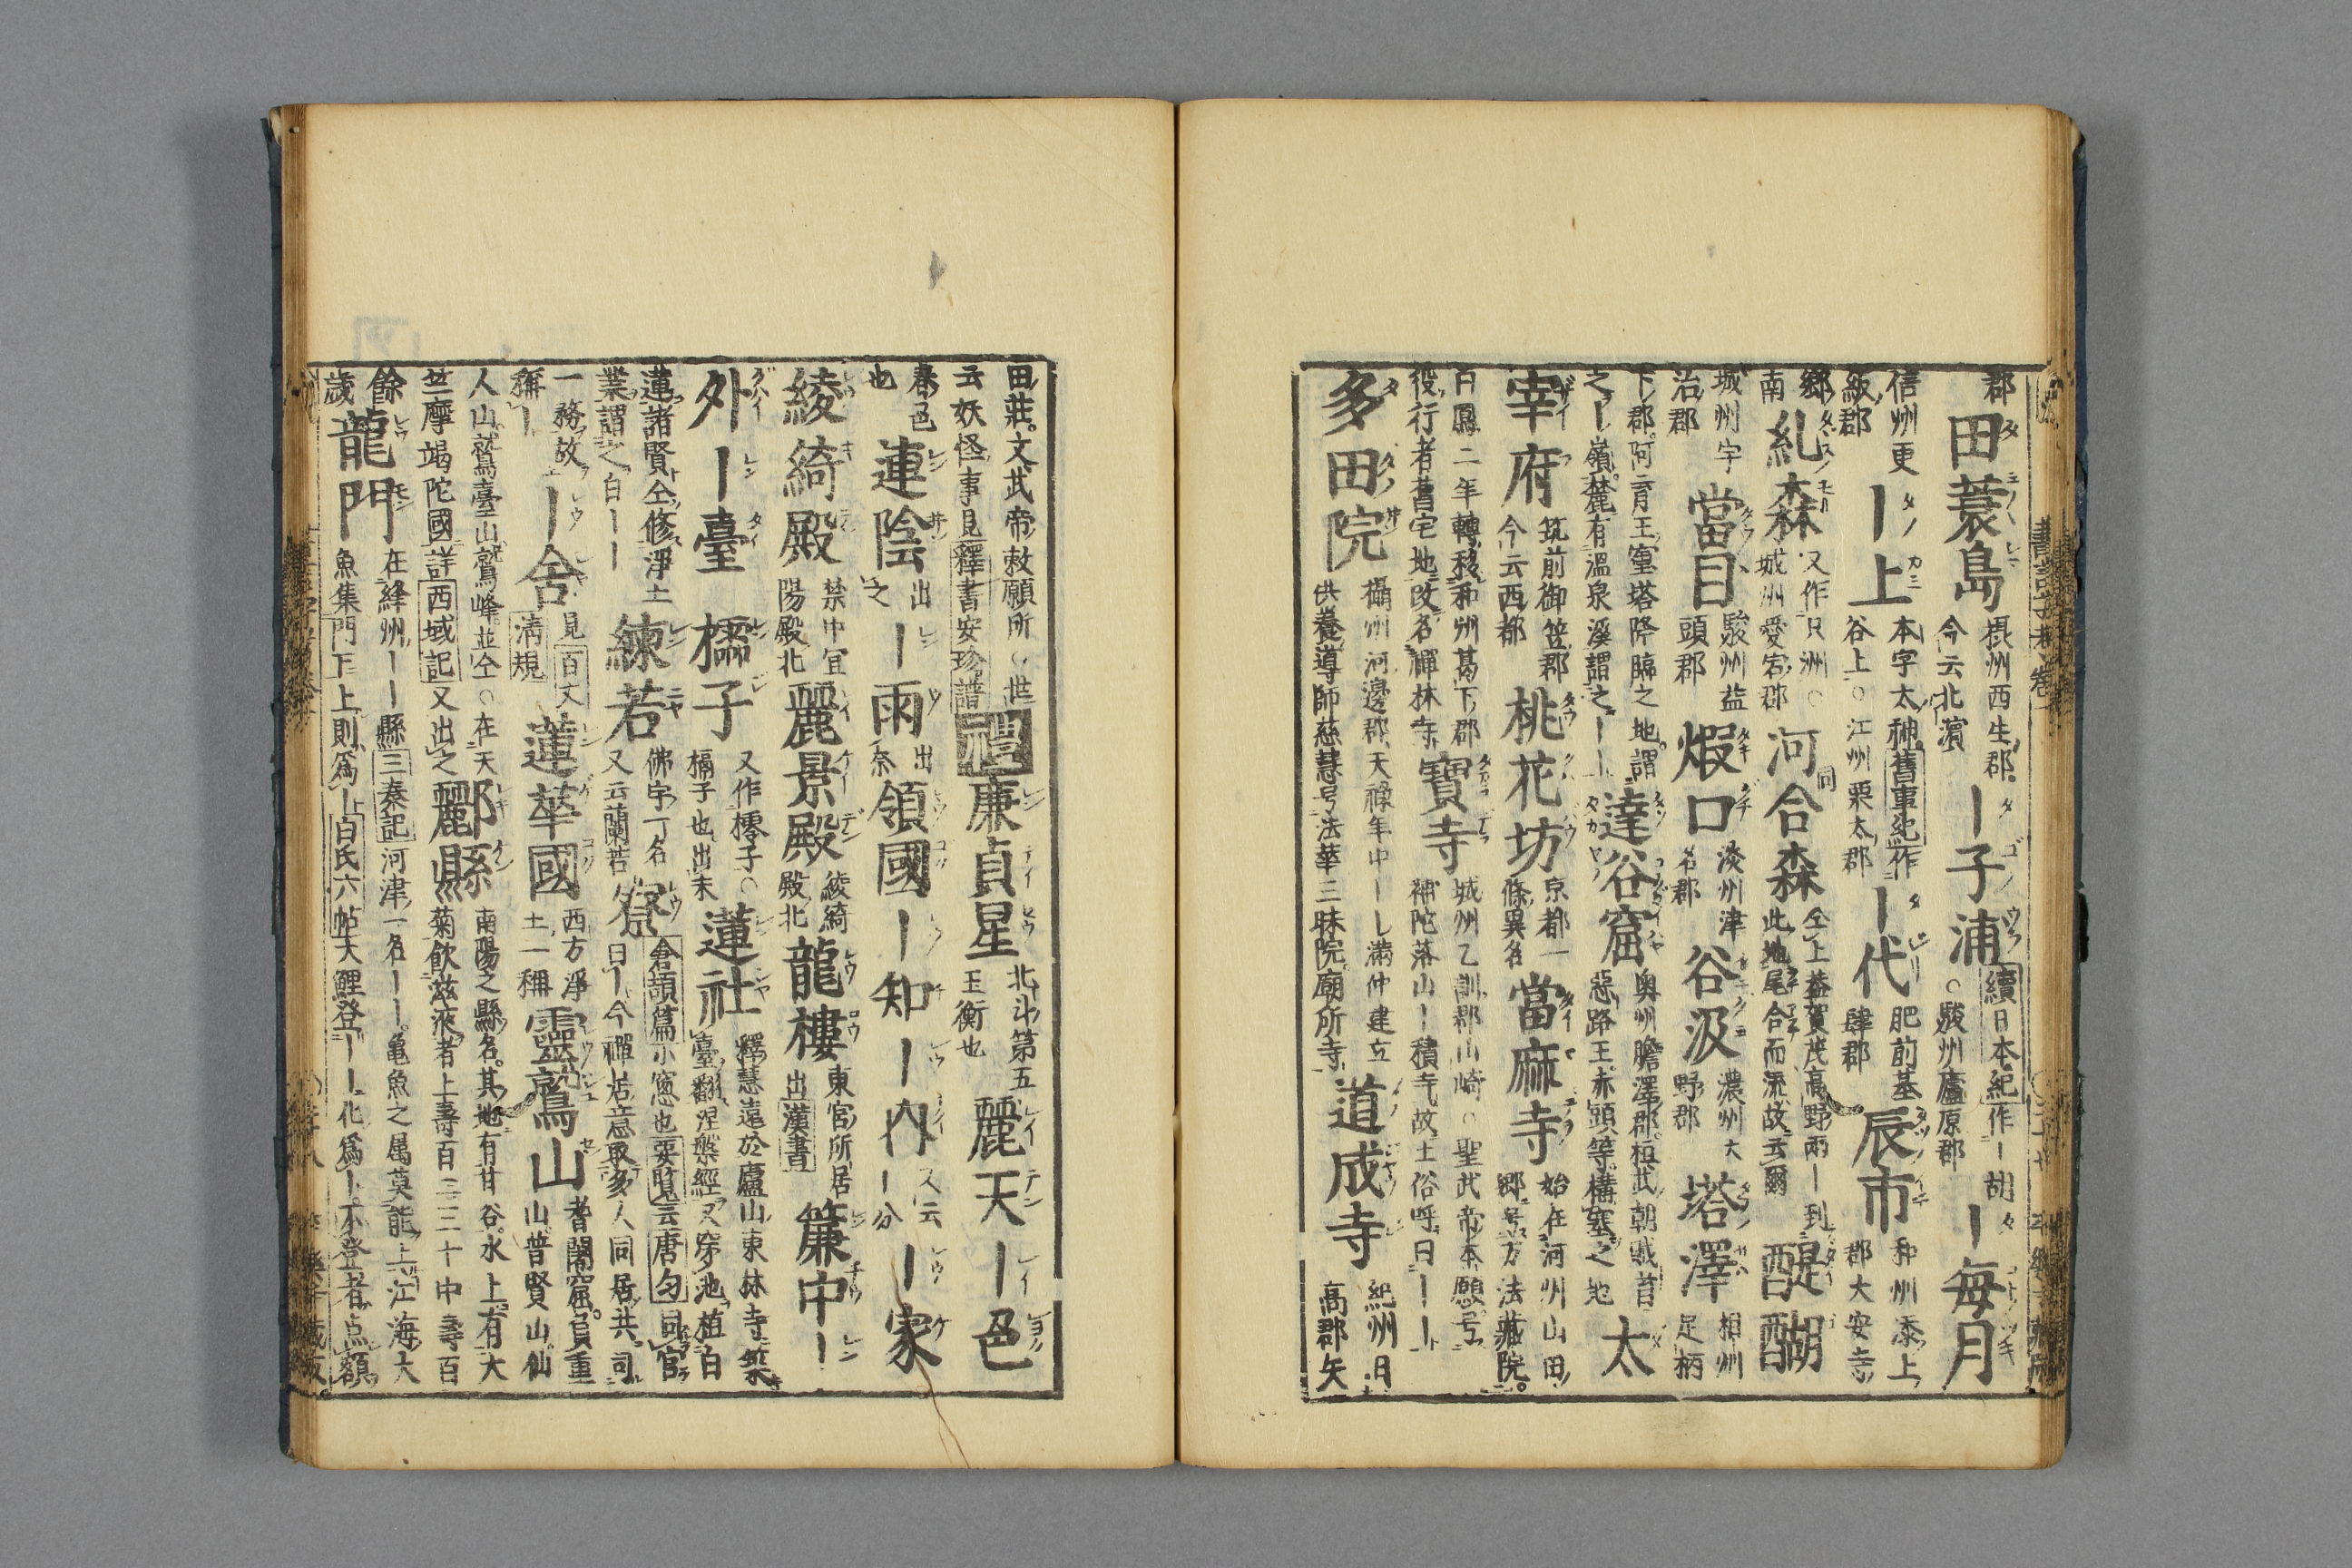 郡 田蓑島 摂州西生郡 今云北濱 ー子浦 續日本紀作ー胡 ○駿州廬原郡 ー毎月
信州更級郡 ー上 本字太神舊事紀作 谷上○江州栗太郡 ー代 肥前基肄郡 辰市 和州添上郡大安寺
郷南 糺森 又作只洲○城州愛宕郡 河合森 同 仝上益賀茂高野兩ー到此地尾合而流故云爾 醍醐
城州宇治郡 當目 駿州益頭郡 煆口 淡州津名郡 谷汲 濃州大野郡 塔澤 相州足柄
下郡 阿育王窒塔降臨之地謂之ー嶺麓有溫泉溪謂之ーー 達谷窟 奥州膽澤郡桓武朝賊首惡路王赤頭等構塞之地 太
宰府 筑前御笠郡今云西都 桃花坊 京都一條異名 當麻寺 始在河州山田郷号万法藏院
日鳳二年轉移和州葛下郡役行者舊宅地改名禪林寺 寶寺 城州乙訓郡山崎○聖武帝本願号補陀落山ー積寺故土俗呼曰ーー
多田院 攝州河邊郡天禄年中ーー満仲建立供養導師慈慧号法華三昧院廟所寺 道成寺 紀州日高郡矢
田莊文武帝敕願所○世云妖怪事見釋書安珍譜 禮 廉貞星 北斗第五玉衡也 麗天 ー色
春色也 連陰 出之 ー雨 出奈 領國 ー知 ー内 又云ー分 ー家
綾綺殿 禁中冝陽殿北 麗景殿 綾綺殿北 龍樓 東宮所居出漢書 簾中 ー
外ー臺 櫺子 又作欞子○槅子也出末 蓮社 釋慧遠於廬山東林寺築臺翻涅槃經又穿池植白
蓮諸賢仝修淨土業謂之白ーー 練若 佛寺一名又云蘭若 寮 倉頡篇小窓也要覧云唐匀同官曰ー今禪居意取多人同居共司
一務故稱ー ー舎 見百丈清規 蓮華國 西方淨土一稱 靈鷲山 耆闍窟負重山普賢山仙
人山鷲臺山鷲峰並仝○在天竺摩竭陀國詳西域記又出之 酈縣 南陽之縣名其地有甘谷水上有大菊飲滋液者上壽百二三十中壽百
餘歲 龍門 在絳州ーー縣三秦記河津一名ーー亀魚之属莫能上江海大魚集門下上則爲ー白氏六帖大鯉登ーー化爲ー不登者点額